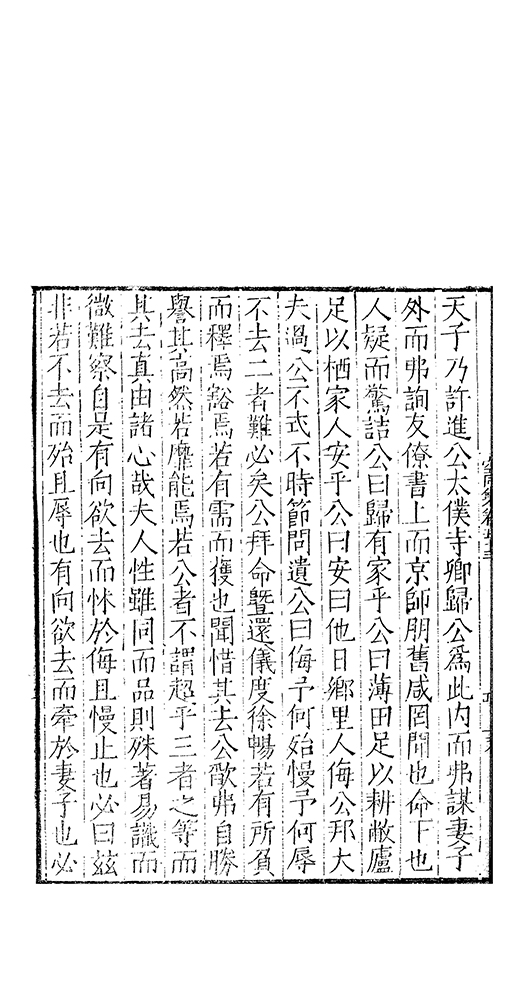 天子乃許進公太僕寺卿歸公爲此内而弗謀妻子
外而弗詢友僚書上而京師朋舊咸罔聞也命下也
人疑而驚詰公曰歸有家乎公曰薄田足以耕敝廬
足以栖家人安乎公曰安曰他日鄉里人侮公邦大
夫過公不式不時節問遺公曰侮予何殆慢予何辱
不去二者難必矣公拜命暨還儀度徐暢若有所負
而釋焉谿焉若有需而獲也聞惜其去公歉弗自勝
譽其高然若靡能焉若公者不謂超乎三者之等而
其去真由諸心哉夫人性雖同而品則殊著易識而
微難察自是有向欲去而怵於侮且慢止也必曰兹
非若不去而殆且辱也有向欲去而牽於妻子也必